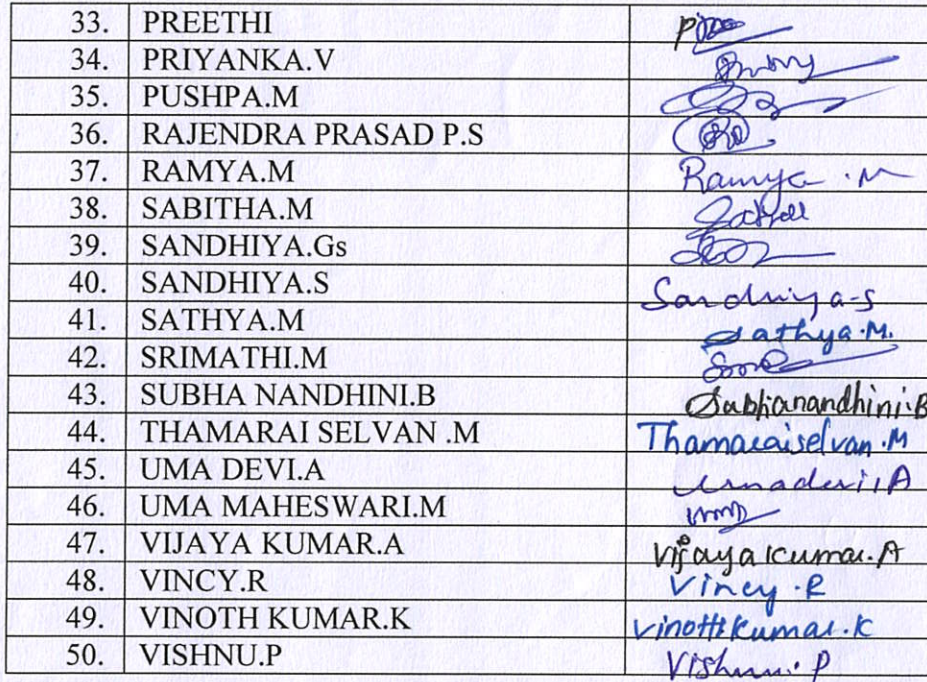 33. PREETHI
34. PRIYANKA.V
35. PUSHPA.M
36. RAJENDRA PRASAD.P.S
37. RAMYA.M Ramya .M
38. SABITHA.M
39. SANDHIYA.Gs
40. SANDHIYA.S Sandhiya-S
41. SATHYA.M Sathya.M.
42. SRIMATHI.M
43. SUBHA NANDHINI.B Subhanandhini.B
44. THAMARAI SELVAN .M Thamaraiselvan.M
45. UMA DEVI.A Umadevi.A
46. UMA MAHESWARI.M
47. VIJAYA KUMAR.A Vijaya kumar.A
48. VINCY.R Vincy.R
49. VINOTH KUMAR.K Vinoth Kumar.K
50. VISHNU.P Vishnu.P